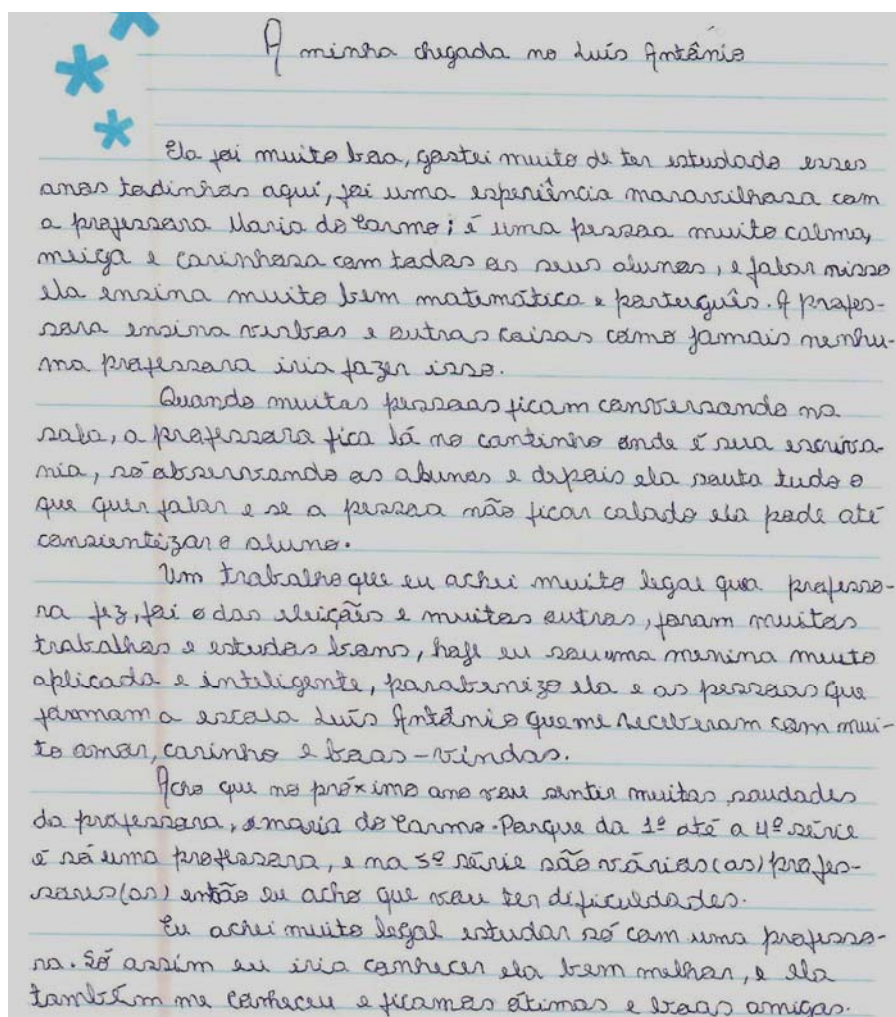 A minha chegada no Luís Antônio
Ela foi muito boa, gostei muito de ter estudado esses
anos todinhos aqui, foi uma esperiência maravilhosa com
a professora Maria do Carmo; é uma pessoa muito calma,
meiga e carinhosa com todos os seus alunos, e falar nisso
ela ensina muito bem matemática e portuguguês. A profes-
sora ensina verbos e outras coisas como jamais nenhu-
ma professora iria fazer isso.
Quando muitas pessoas ficam conversando na
sala, a professora fica lá no cantinho onde é sua escriva-
nia, só observando os alunos e depois ela souta tudo o
que quer falar e se a pessoa não ficar calado ela pode até
consientizar o aluno.
Um trabalho que eu achei muito legal qua professo-
ra fez, foi o das eleições e muitos outros, foram muitos
trabalhos e estudos bons, hoje eu sou uma menina muito
aplicada e inteligente, parabenizo ela e as pessoas que
formam a escola Luís Antônio que me receberam com mui-
to amor, carinho e boas-vindas.
Acho que no próximo ano vou sentir muitas saudades
da professora, Maria do Carmo. Porque da 1ª até a 4ª série
é só uma professora, e na 5ª série são vários(as) profes-
sores(as) então eu acho que vou ter dificuldades.
Eu achei muito legal estudar só com uma professo-
ra. Só assim eu iria conhecer ela bem melhor, e ela
também me conheceu e ficamos ótimas e boas amigas.